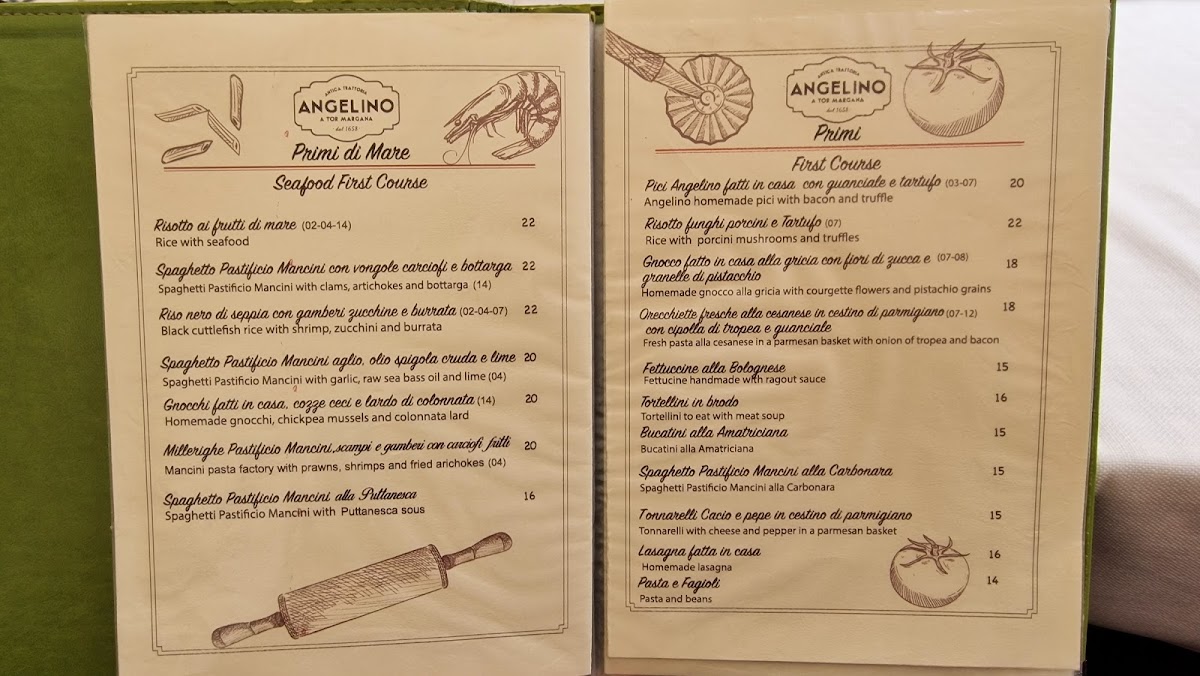 ANTICA TRATTORIA
ANGELINO
A TOR MARGANA
dal 1653
Primi di Mare
Seafood First Course
Risotto ai frutti di mare (02-04-14) 22
Rice with seafood
Spaghetto Pastificio Mancini con vongole carciofi e bottarga 22
Spaghetti Pastificio Mancini with clams, artichokes and bottarga (14)
Riso nero di seppia con gamberi zucchine e burrata (02-04-07) 22
Black cuttlefish rice with shrimp, zucchini and burrata
Spaghetto Pastificio Mancini aglio, olio spigola cruda e lime 20
Spaghetti Pastificio Mancini with garlic, raw sea bass oil and lime (04)
Gnocchi fatti in casa, cozze ceci e lardo di colonnata (14) 20
Homemade gnocchi, chickpea mussels and colonnata lard
Millerighe Pastificio Mancini, scampi e gamberi con carciofi fritti 20
Mancini pasta factory with prawns, shrimps and fried arichokes (04)
Spaghetto Pastificio Mancini alla Puttanesca 16
Spaghetti Pastificio Mancini with Puttanesca sous
ANTICA TRATTORIA
ANGELINO
A TOR MARGANA
dal 1653
Primi
First Course
Pici Angelino fatti in casa con guanciale e tartufo (03-07) 20
Angelino homemade pici with bacon and truffle
Risotto funghi porcini e Tartufo (07) 22
Rice with porcini mushrooms and truffles
Gnocco fatto in casa alla gricia con fiori di zucca e (07-08) 18
granelle di pistacchio
Homemade gnocco alla gricia with courgette flowers and pistachio grains
Orecchiette fresche alla cesanese in cestino di parmigiano (07-12) 18
con cipolla di tropea e guanciale
Fresh pasta alla cesanese in a parmesan basket with onion of tropea and bacon
Fettuccine alla Bolognese 15
Fettucine handmade with ragout sauce
Tortellini in brodo 16
Tortellini to eat with meat soup
Bucatini alla Amatriciana 15
Bucatini alla Amatriciana
Spaghetto Pastificio Mancini alla Carbonara 15
Spaghetti Pastificio Mancini alla Carbonara
Tonnarelli Cacio e pepe in cestino di parmigiano 15
Tonnarelli with cheese and pepper in a parmesan basket
Lasagna fatta in casa 16
Homemade lasagna
Pasta e Fagioli 14
Pasta and beans